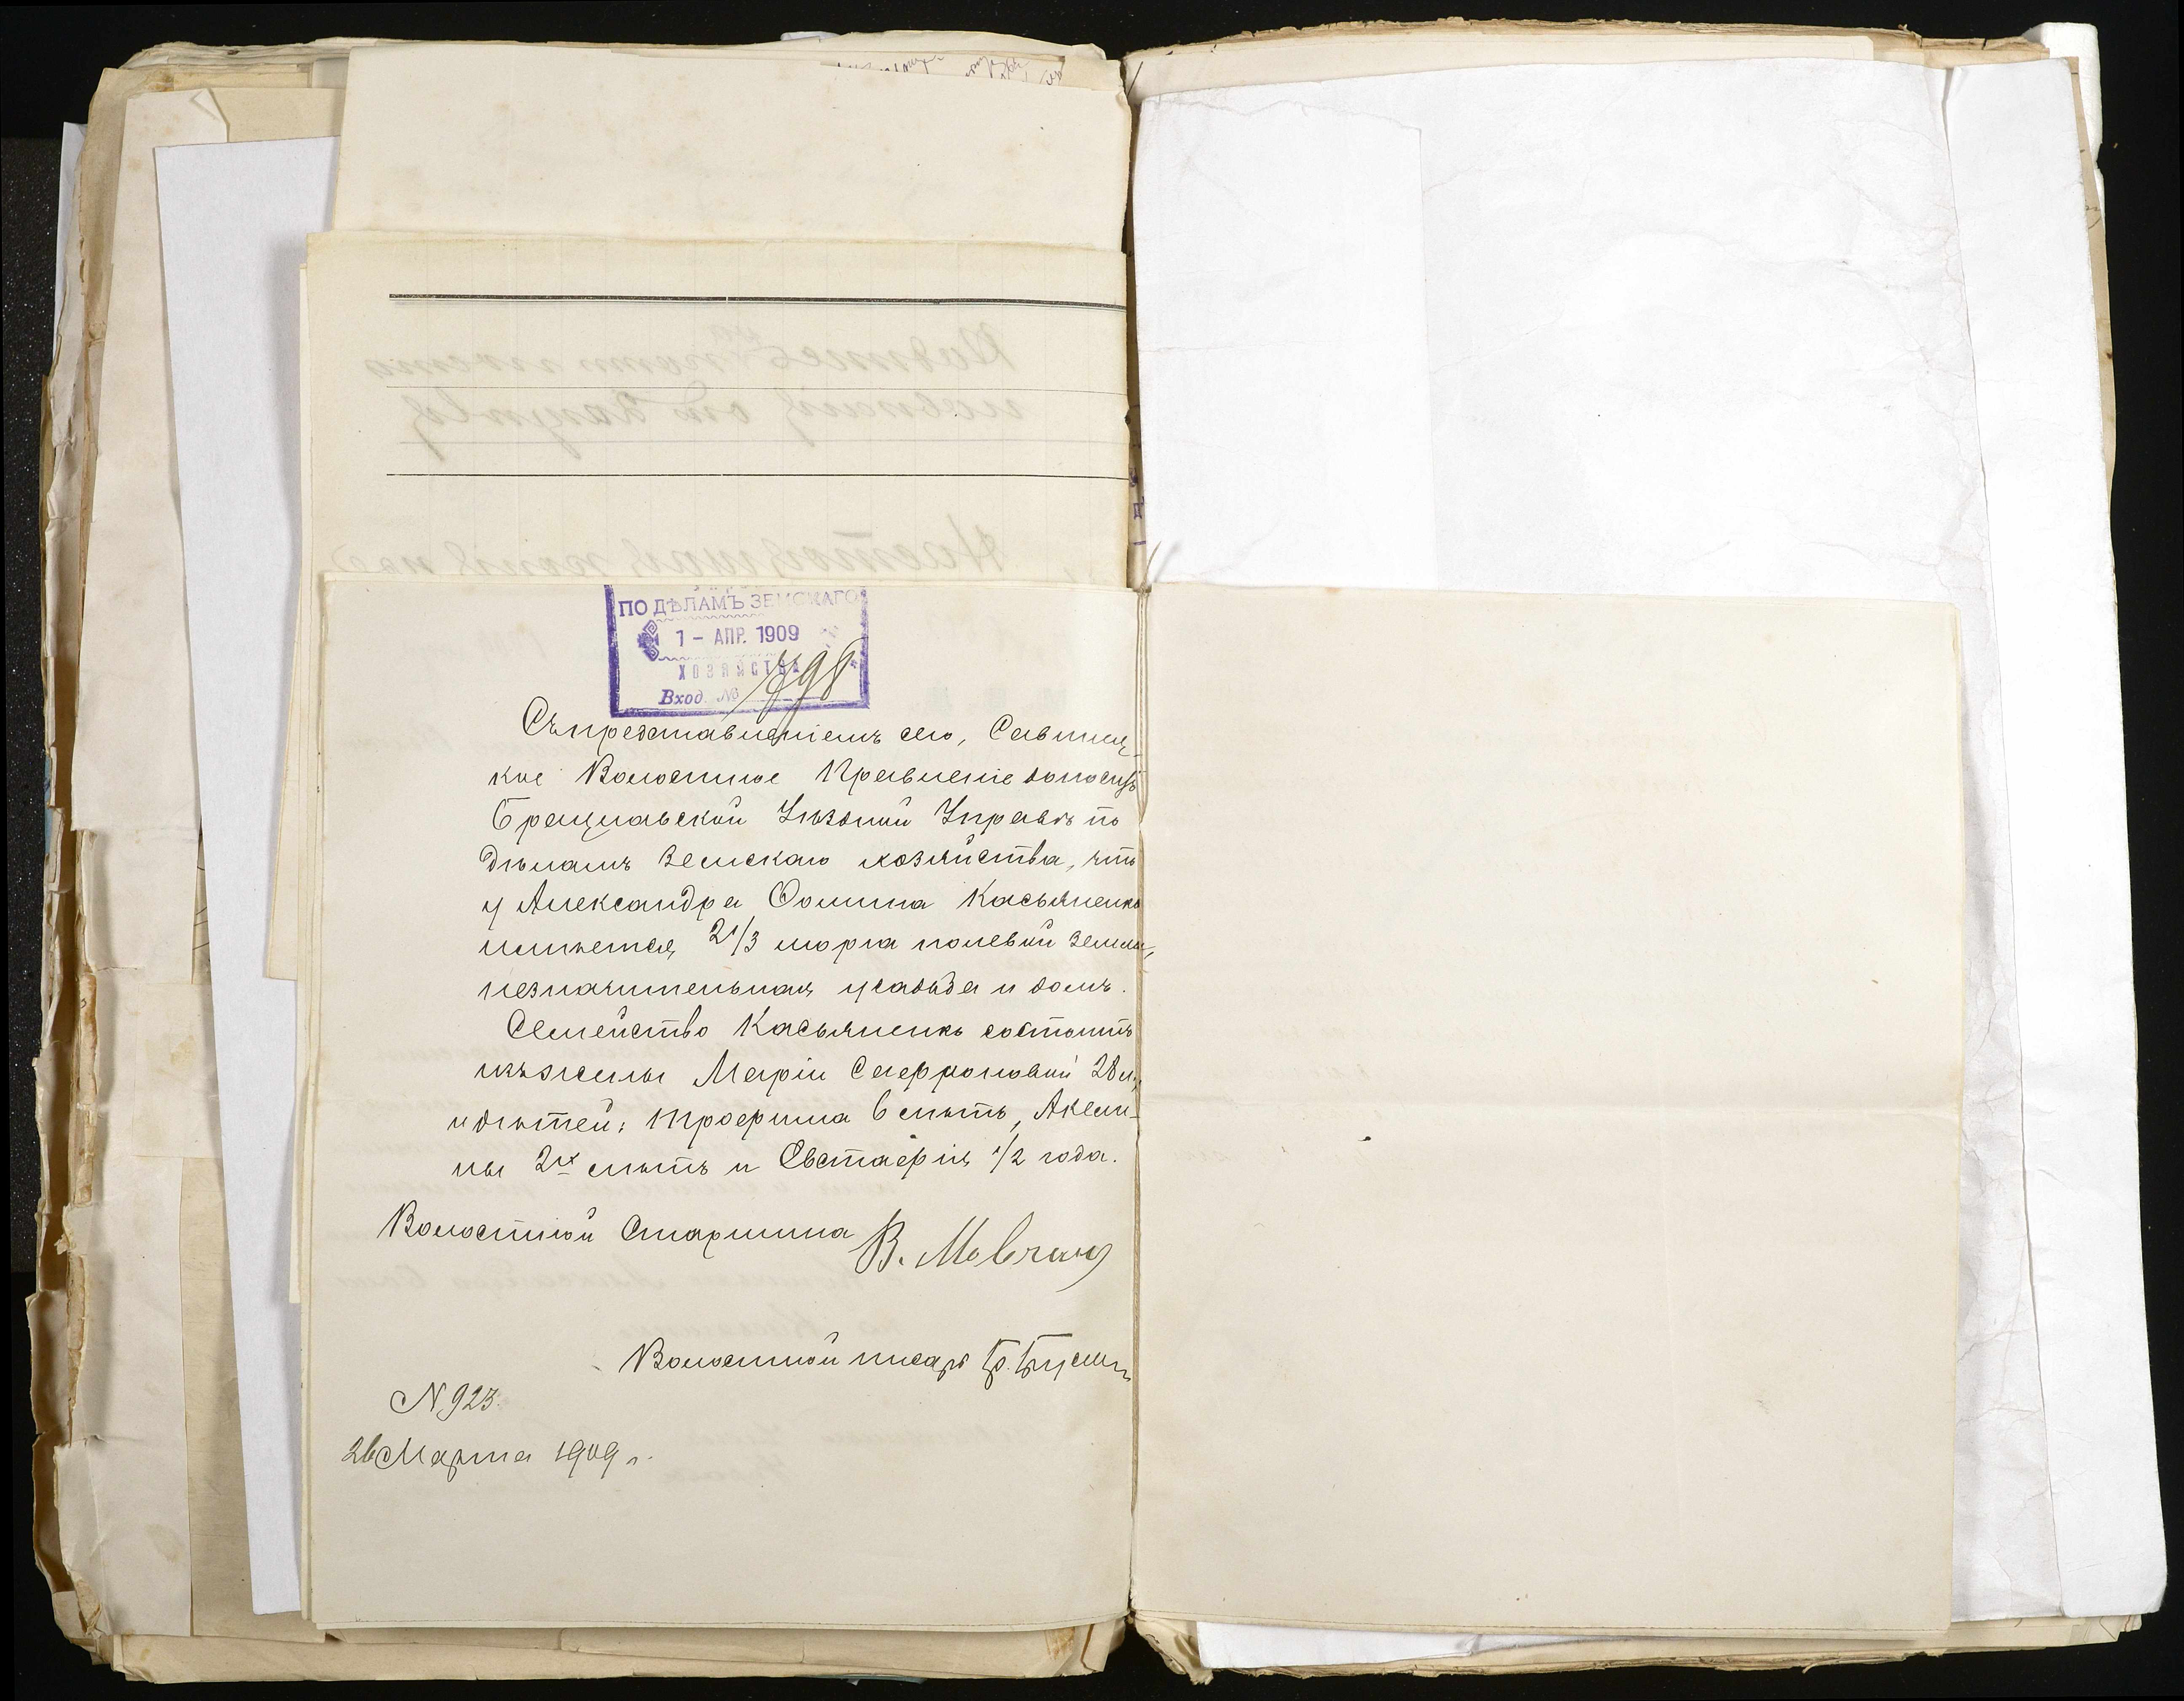 ПО ДѢЛАМЪ ЗЕМСКАГО
1 – АПР. 1909
ХОЗЯЙСТВА
Вход. №
Съ представленіемъ сего, Савинц-
кое Волостное Правленіе доноситъ
Брацлавской Уѣздной Управѣ по
дѣламъ земскаго хозяйства, что
у Александра Фомина Касьяненко
имѣется 2 1/3 морга полевой земли,
незначительная усадьба и домъ.
Семейство Касьяненко состоитъ
изъ жены Маріи Сафроновой 28 л.,
и дѣтей: Трофима 6 лѣтъ, Аксен-
ны 2х лѣтъ и Евстафія 1/2 года.
Волостной Старшина В. Мовчан
Волостной писарь Гр.
N 923.
26 Марта 1909 г.